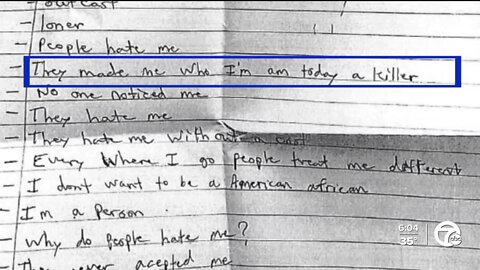 - outcast
- loner
- People hate me
- They made me who I'm am today a killer
- No one noticed me
- They hate me
- They hate me without a cast
- Every where I go people treat me different
- I don't want to be a American african
- I'm a person
- Why do people hate me?
- They never acepted me
6:04
35°
7
abc